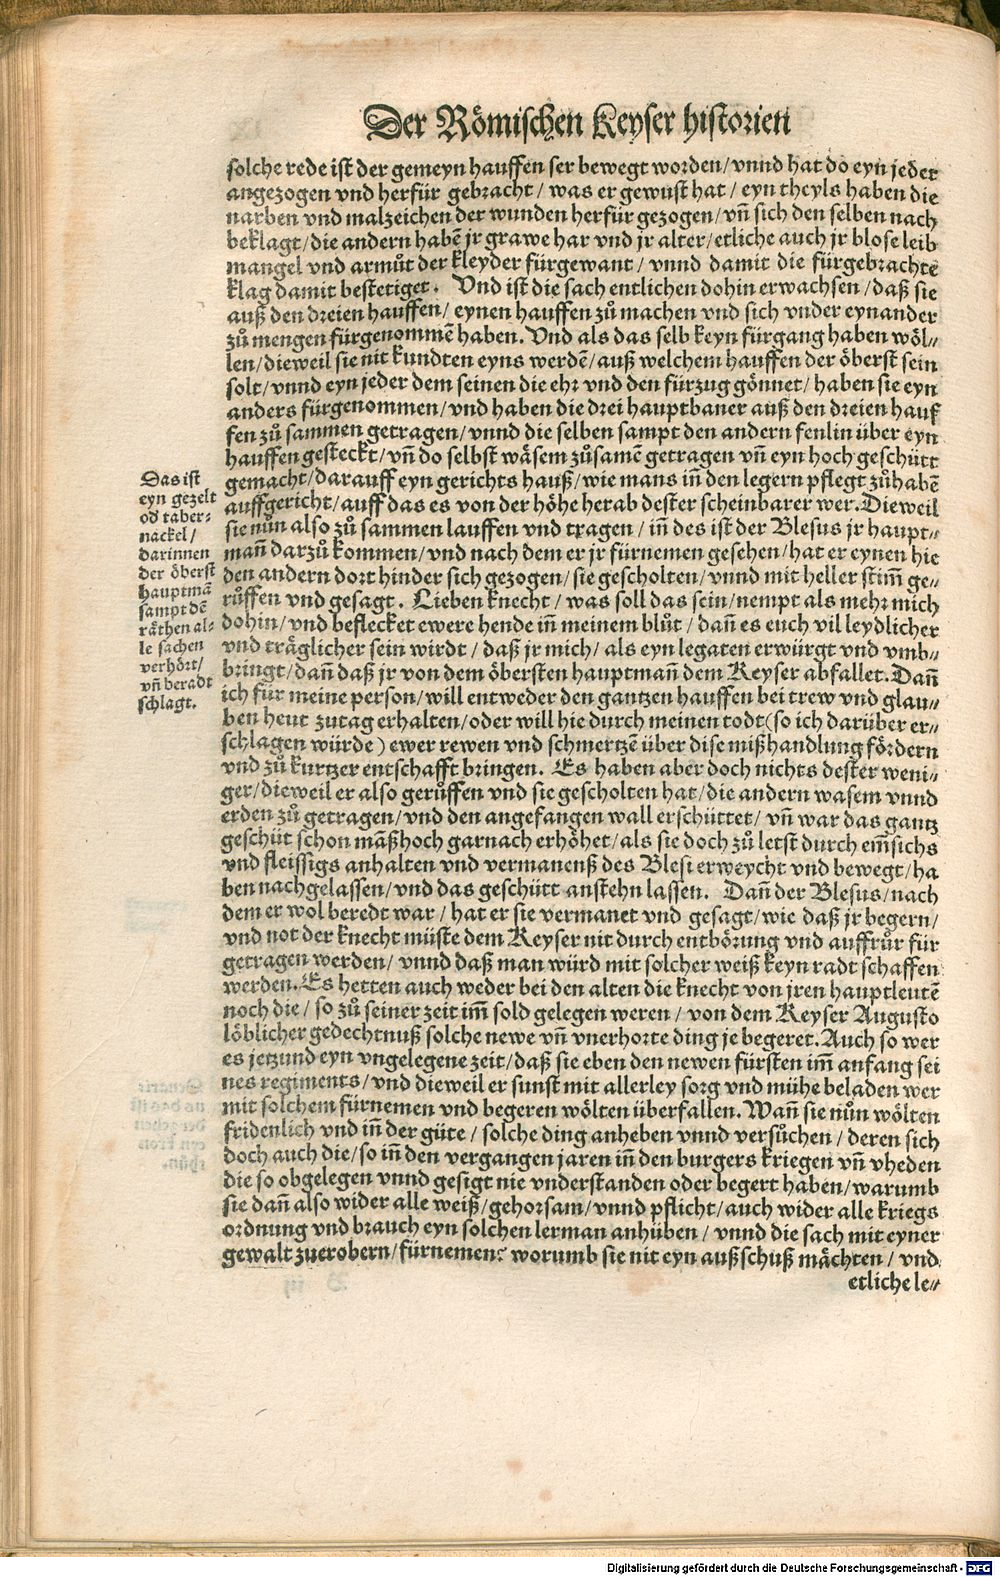 Der Römischen Keyser historien
solche rede ist der gemeyn hauffen ser bewegt worden/ vnnd hat do eyn jeder
angezogen vnd herfür gebracht/ was er gewust hat/ eyn theyls haben die
narben vnd malzeichen der wunden herfür gezogen/ vñ sich den selben nach
beklagt/ die andern habẽ jr grawe har vnd jr alter/ etliche auch jr blose leib
mangel vnd armůt der kleyder fürgewant/ vnnd damit die fürgebrachte
klag damit bestetiget. Vnd ist die sach entlichen dohin erwachsen/ daß sie
auß den dreien hauffen/ eynen hauffen zů machen vnd sich vnder eynander
zů mengen fürgenommẽ haben. Vnd als das selb keyn fürgang haben wöl⸗
len/ dieweil sie nit kundten eyns werdẽ/ auß welchem hauffen der öberst sein
solt/ vnnd eyn jeder dem seinen die ehr vnd den fürzug gönnet/ haben sie eyn
anders fürgenommen/ vnd haben die drei hauptbaner auß den dreien hauf
fen zů sammen getragen/ vnnd die selben sampt den andern fenlin über eyn
hauffen gesteckt/ vñ do selbst wäsem zůsamẽ getragen vñ eyn hoch geschütt
gemacht/ darauff eyn gerichts hauß/ wie mans iñ den legern pflegt zůhabẽ
auffgericht/ auff das es von der höhe herab dester scheinbarer wer. Dieweil
sie nůn also zů sammen lauffen vnd tragen/ iñ des ist der Blesus jr haupt⸗
mañ darzů kommen/ vnd nach dem er jr fürnemen gesehen/ hat er eynen hie
den andern dort hinder sich gezogen/ sie gescholten/ vnnd mit heller stim̃ ge⸗
rüffen vnd gesagt. Lieben knecht/ was soll das sein/ nempt als mehr mich
dohin/ vnd beflecket ewere hende iñ meinem blůt/ dañ es euch vil leydlicher
vnd träglicher sein wirdt/ daß jr mich/ als eyn legaten erwürgt vnd vmb⸗
bringt/ dañ daß jr von dem öbersten hauptmañ dem Keyser abfallet. Dañ
ich für meine person/ will entweder den gantzen hauffen bei trew vnd glau⸗
ben heut zutag erhalten/ oder will hie durch meinen todt (so ich darüber er⸗
schlagen würde) ewer rewen vnd schmertzẽ über dise mißhandlung fördern
vnd zů kurtzer entschafft bringen. Es haben aber doch nichts dester weni⸗
ger/ dieweil er also gerůffen vnd sie gescholten hat/ die andern wasem vnnd
erden zů getragen/ vnd den angefangen wall erschüttet/ vñ war das gantz
geschüt schon mãßhoch garnach erhöhet/ als sie doch zů letst durch em̃sichs
vnd fleissigs anhalten vnd vermanenß des Blesi erweycht vnd bewegt/ ha
ben nachgelassen/ vnd das geschütt anstehn lassen. Dañ der Blesus/ nach
dem er wol beredt war/ hat er sie vermanet vnd gesagt/ wie daß jr begern/
vnd not der knecht müste dem Keyser nit durch entbörung vnd auffrůr für
getragen werden/ vnnd daß man würd mit solcher weiß keyn radt schaffen
werden. Es hetten auch weder bei den alten die knecht von jren hauptleutẽ
noch die/ so zů seiner zeit im̃ sold gelegen weren/ von dem Keyser Augusto
löblicher gedechtnuß solche newe vñ vnerhorte ding je begeret. Auch so wer
es jetzund eyn vngelegene zeit/ daß sie eben den newen fürsten im̃ anfang sei
nes regiments/ vnd dieweil er sunst mit allerley sorg vnd mühe beladen wer
mit solchem fürnemen vnd begeren wölten überfallen. Wañ sie nůn wölten
fridenlich vnd iñ der güte/ solche ding anheben vnnd versůchen/ deren sich
doch auch die/ so iñ den vergangen jaren iñ den burgers kriegen vñ vheden
die so obgelegen vnnd gesigt nie vnderstanden oder begert haben/ warumb
sie dañ also wider alle weiß/ gehorsam/ vnnd pflicht/ auch wider alle kriegs
ordnung vnd brauch eyn solchen lerman anhüben/ vnnd die sach mit eyner
gewalt zuerobern/ fürnemen? worumb sie nit eyn außschuß mächten/ vnd
etliche le⸗
Das ist
eyn gezelt
od taber⸗
nackel/
darinnen
der öberst
hauptmã
sampt dẽ
räthen al⸗
le sachen
verhört/
vñ beradt
schlagt.
Digitalisierung gefördert durch die Deutsche Forschungsgemeinschaft - DFG